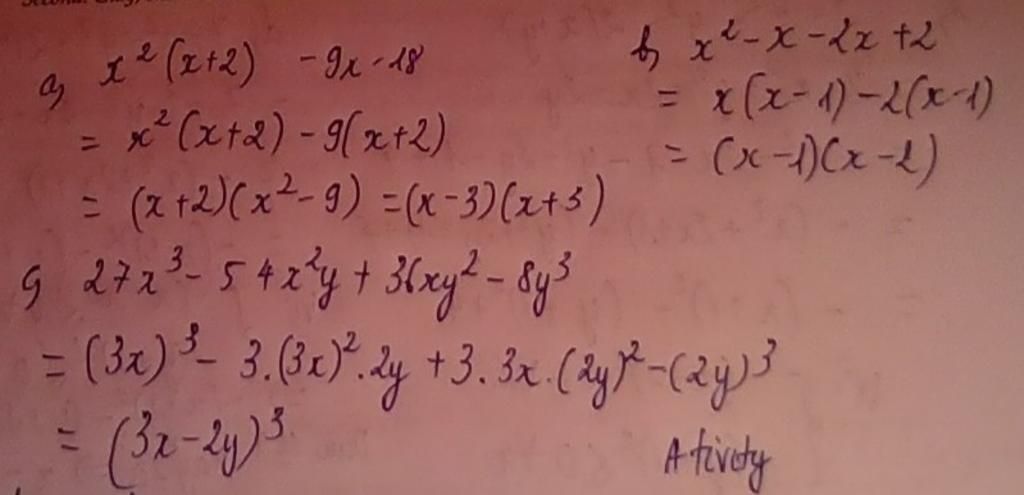 a, x²(x+2) - 9x - 18
= x²(x+2) - 9(x+2)
= (x+2)(x² - 9) = (x-3)(x+3)
b, x² - x - 2x + 2
= x(x-1) - 2(x-1)
= (x-1)(x-2)
c, 27x³ - 54x²y + 36xy² - 8y³
= (3x)³ - 3.(3x)².2y + 3.3x.(2y)² - (2y)³
= (3x-2y)³